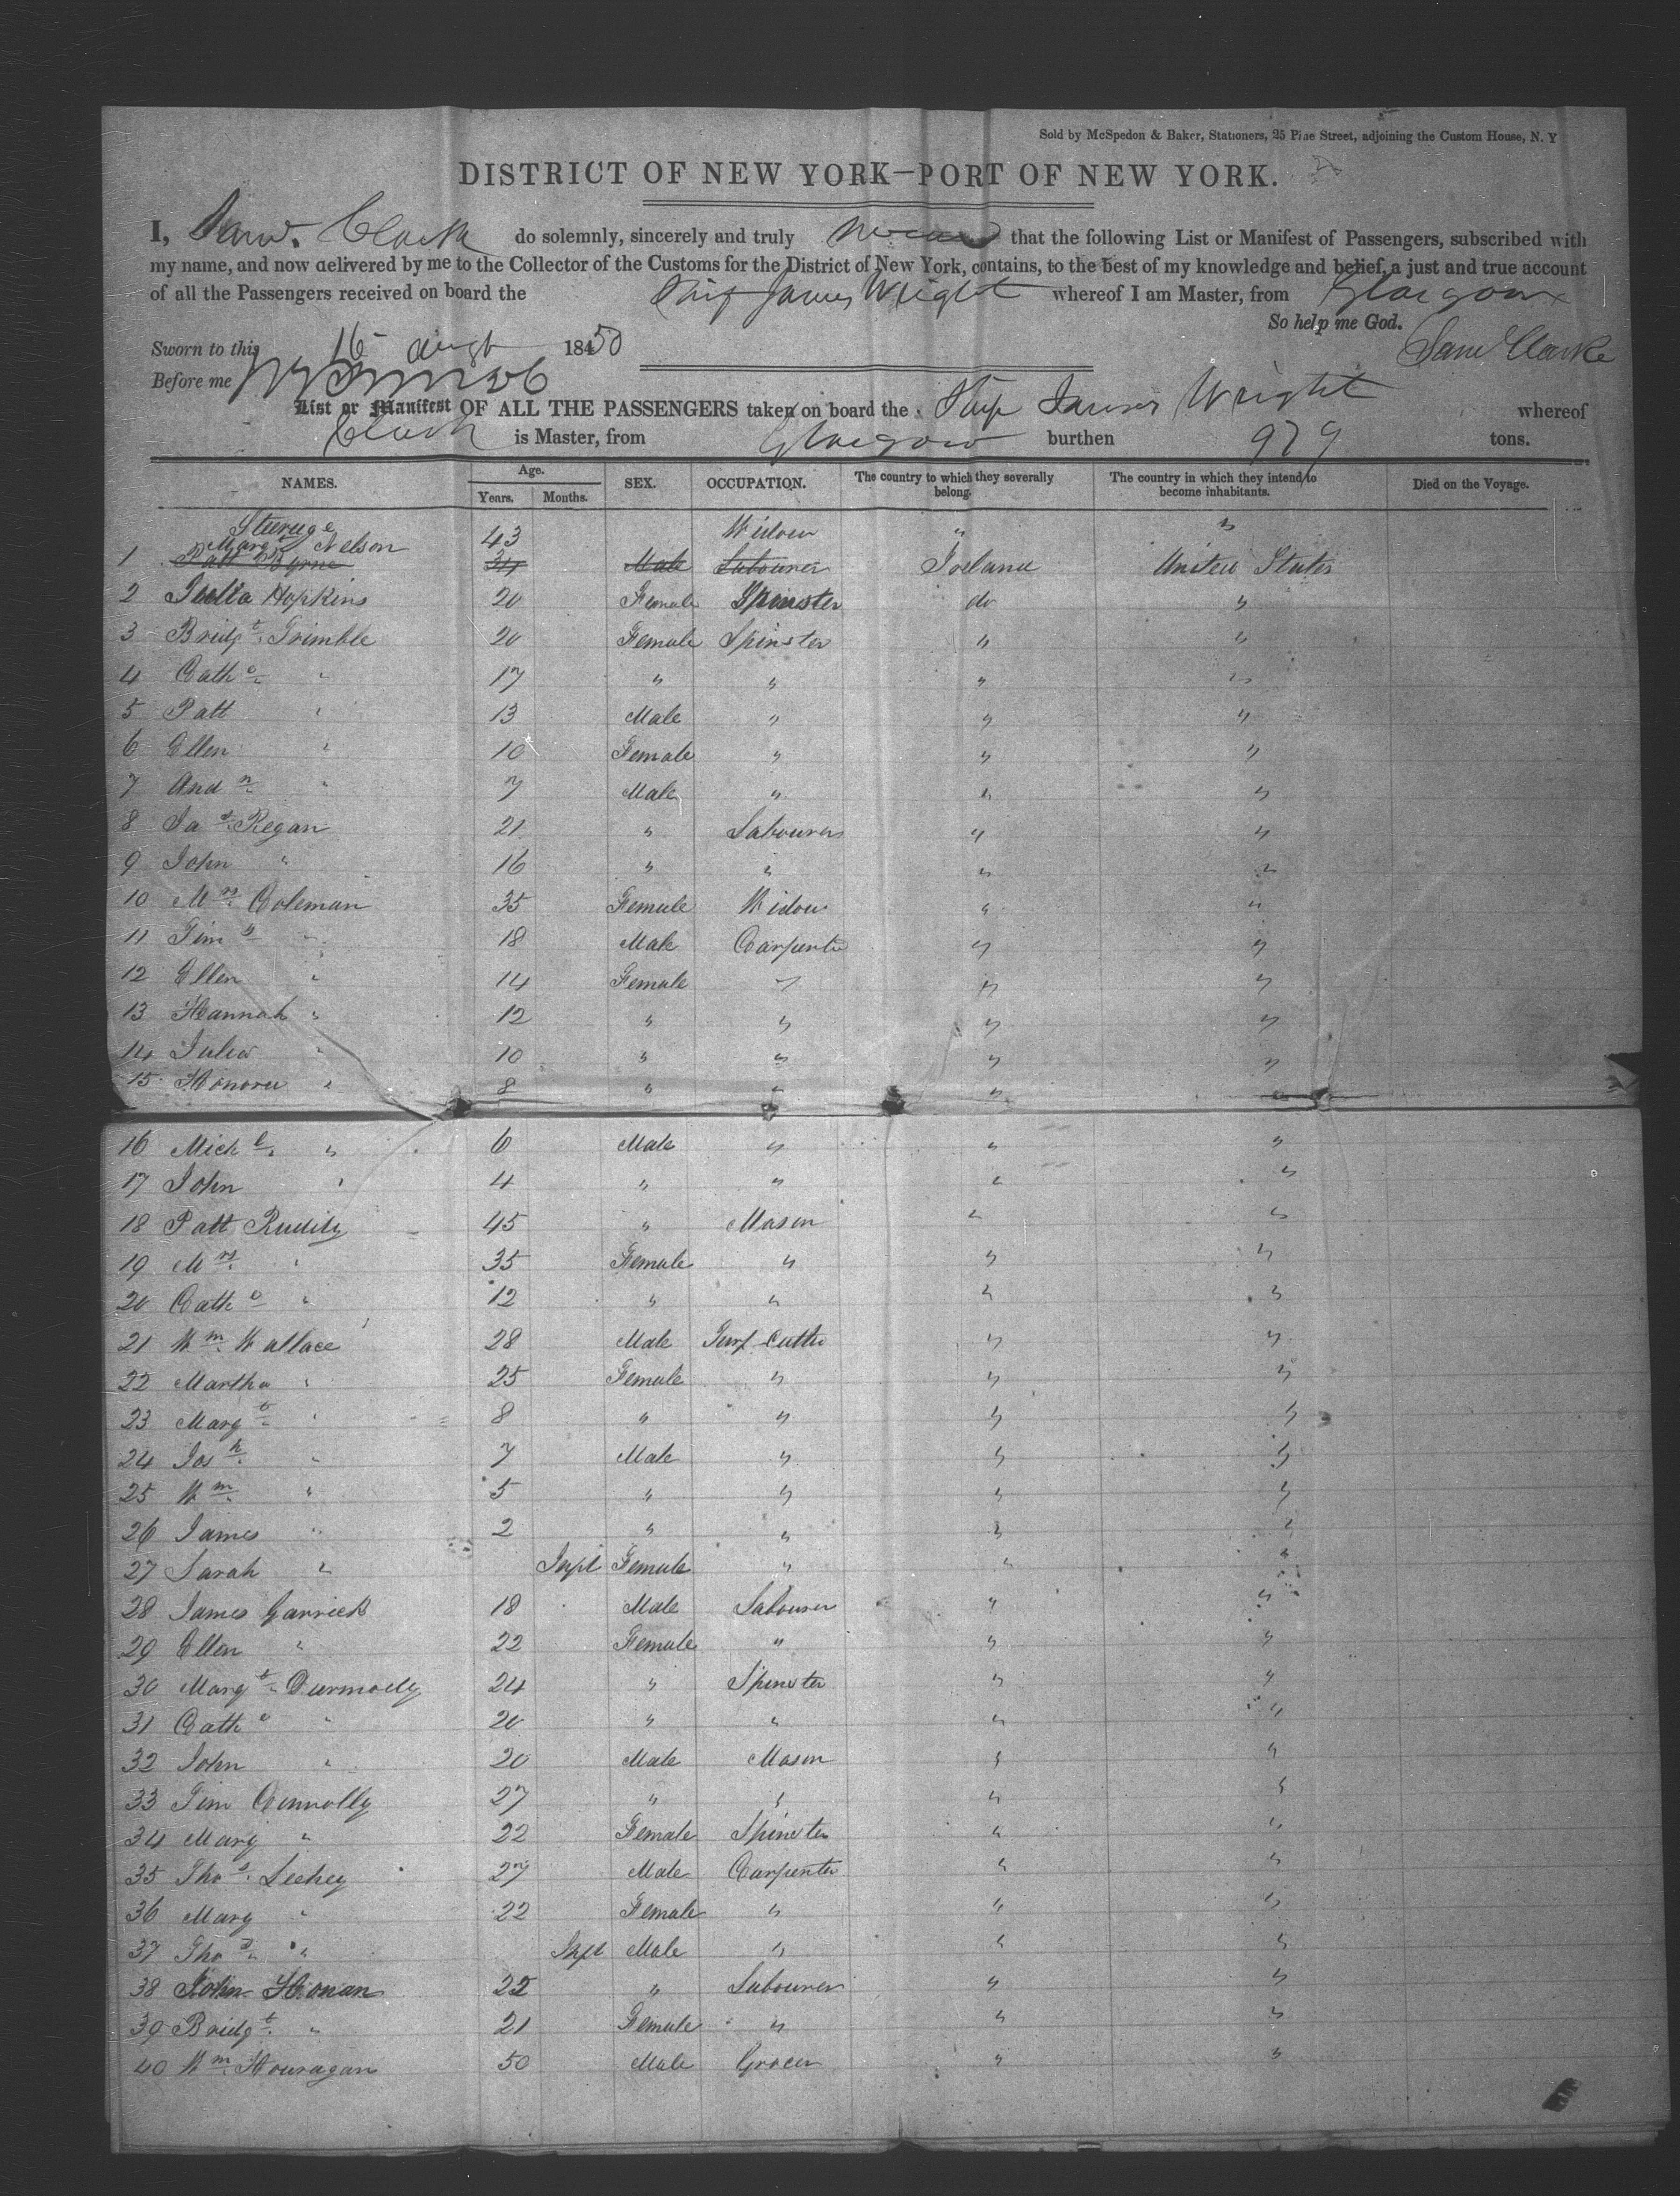 Sold by McSpedon & Baker, Stationers, 25 Pine Street, adjoining the Custom House, N. Y
DISTRICT OF NEW YORK—PORT OF NEW YORK.
I, Saml. Clark do solemnly, sincerely and truly swear that the following List or Manifest of Passengers, subscribed with
my name, and now delivered by me to the Collector of the Customs for the District of New York, contains, to the best of my knowledge and belief, a just and true account
of all the Passengers received on board the Ship James Wright whereof I am Master, from Glasgow
So help me God.
Sworn to this 16 Augt 18450 Saml Clarke
Before me
List or Manifest OF ALL THE PASSENGERS taken on board the Ship James Wright whereof
Clark is Master, from Glasgow burthen 979 tons.
NAMES. Age. Years. Months. SEX. OCCUPATION. The country to which they severally belong. The country in which they intend to become inhabitants. Died on the Voyage.
Steerage
Margt Nelson 43 Widow " "
1 Patt Byrne 34 Male Labourer Ireland United States
2 Julia Hopkins 20 Female Spinster do "
3 Bridgt. Trimble 20 Female Spinster " "
4 Cathe " 17 " " " "
5 Patt " 13 Male " " "
6 Ellen " 10 Female " " "
7 Andw " 7 Male " " "
8 Jas Regan 21 " Labourer " "
9 John " 16 " " " "
10 Mrs Coleman 35 Female Widow " "
11 Tims " 18 Male Carpenter " "
12 Ellen " 14 Female " " "
13 Hannah " 12 " " " "
14 Julia " 10 " " " "
15 Honora " 8 " " " "
16 Michl. " 6 Male " " "
17 John " 4 " " " "
18 Patt Ruddy 45 " Mason " "
19 Mrs. " 35 Female " " "
20 Cathe " 12 " " " "
21 Wm. Wallace 28 Male Turf Cutter " "
22 Martha " 25 Female " " "
23 Margt " 8 " " " "
24 Josh. " 7 Male " " "
25 Wm. " 5 " " " "
26 James " 2 " " " "
27 Sarah " Inft Female " " "
28 James Garrick 18 Male Labourer " "
29 Ellen " 22 Female " " "
30 Margt. Durmody 24 " Spinster " "
31 Cathe " 20 " " " "
32 John " 20 Male Mason " "
33 Tim Connolly 27 " " " "
34 Mary " 22 Female Spinster " "
35 Thos. Leehey 27 Male Carpenter " "
36 Mary " 22 Female " " "
37 Thos. " Inft Male " " "
38 John Honan 22 " Labourer " "
39 Bridgt. " 21 Female " " "
40 Wm. Houragan 50 Male Grocer " "